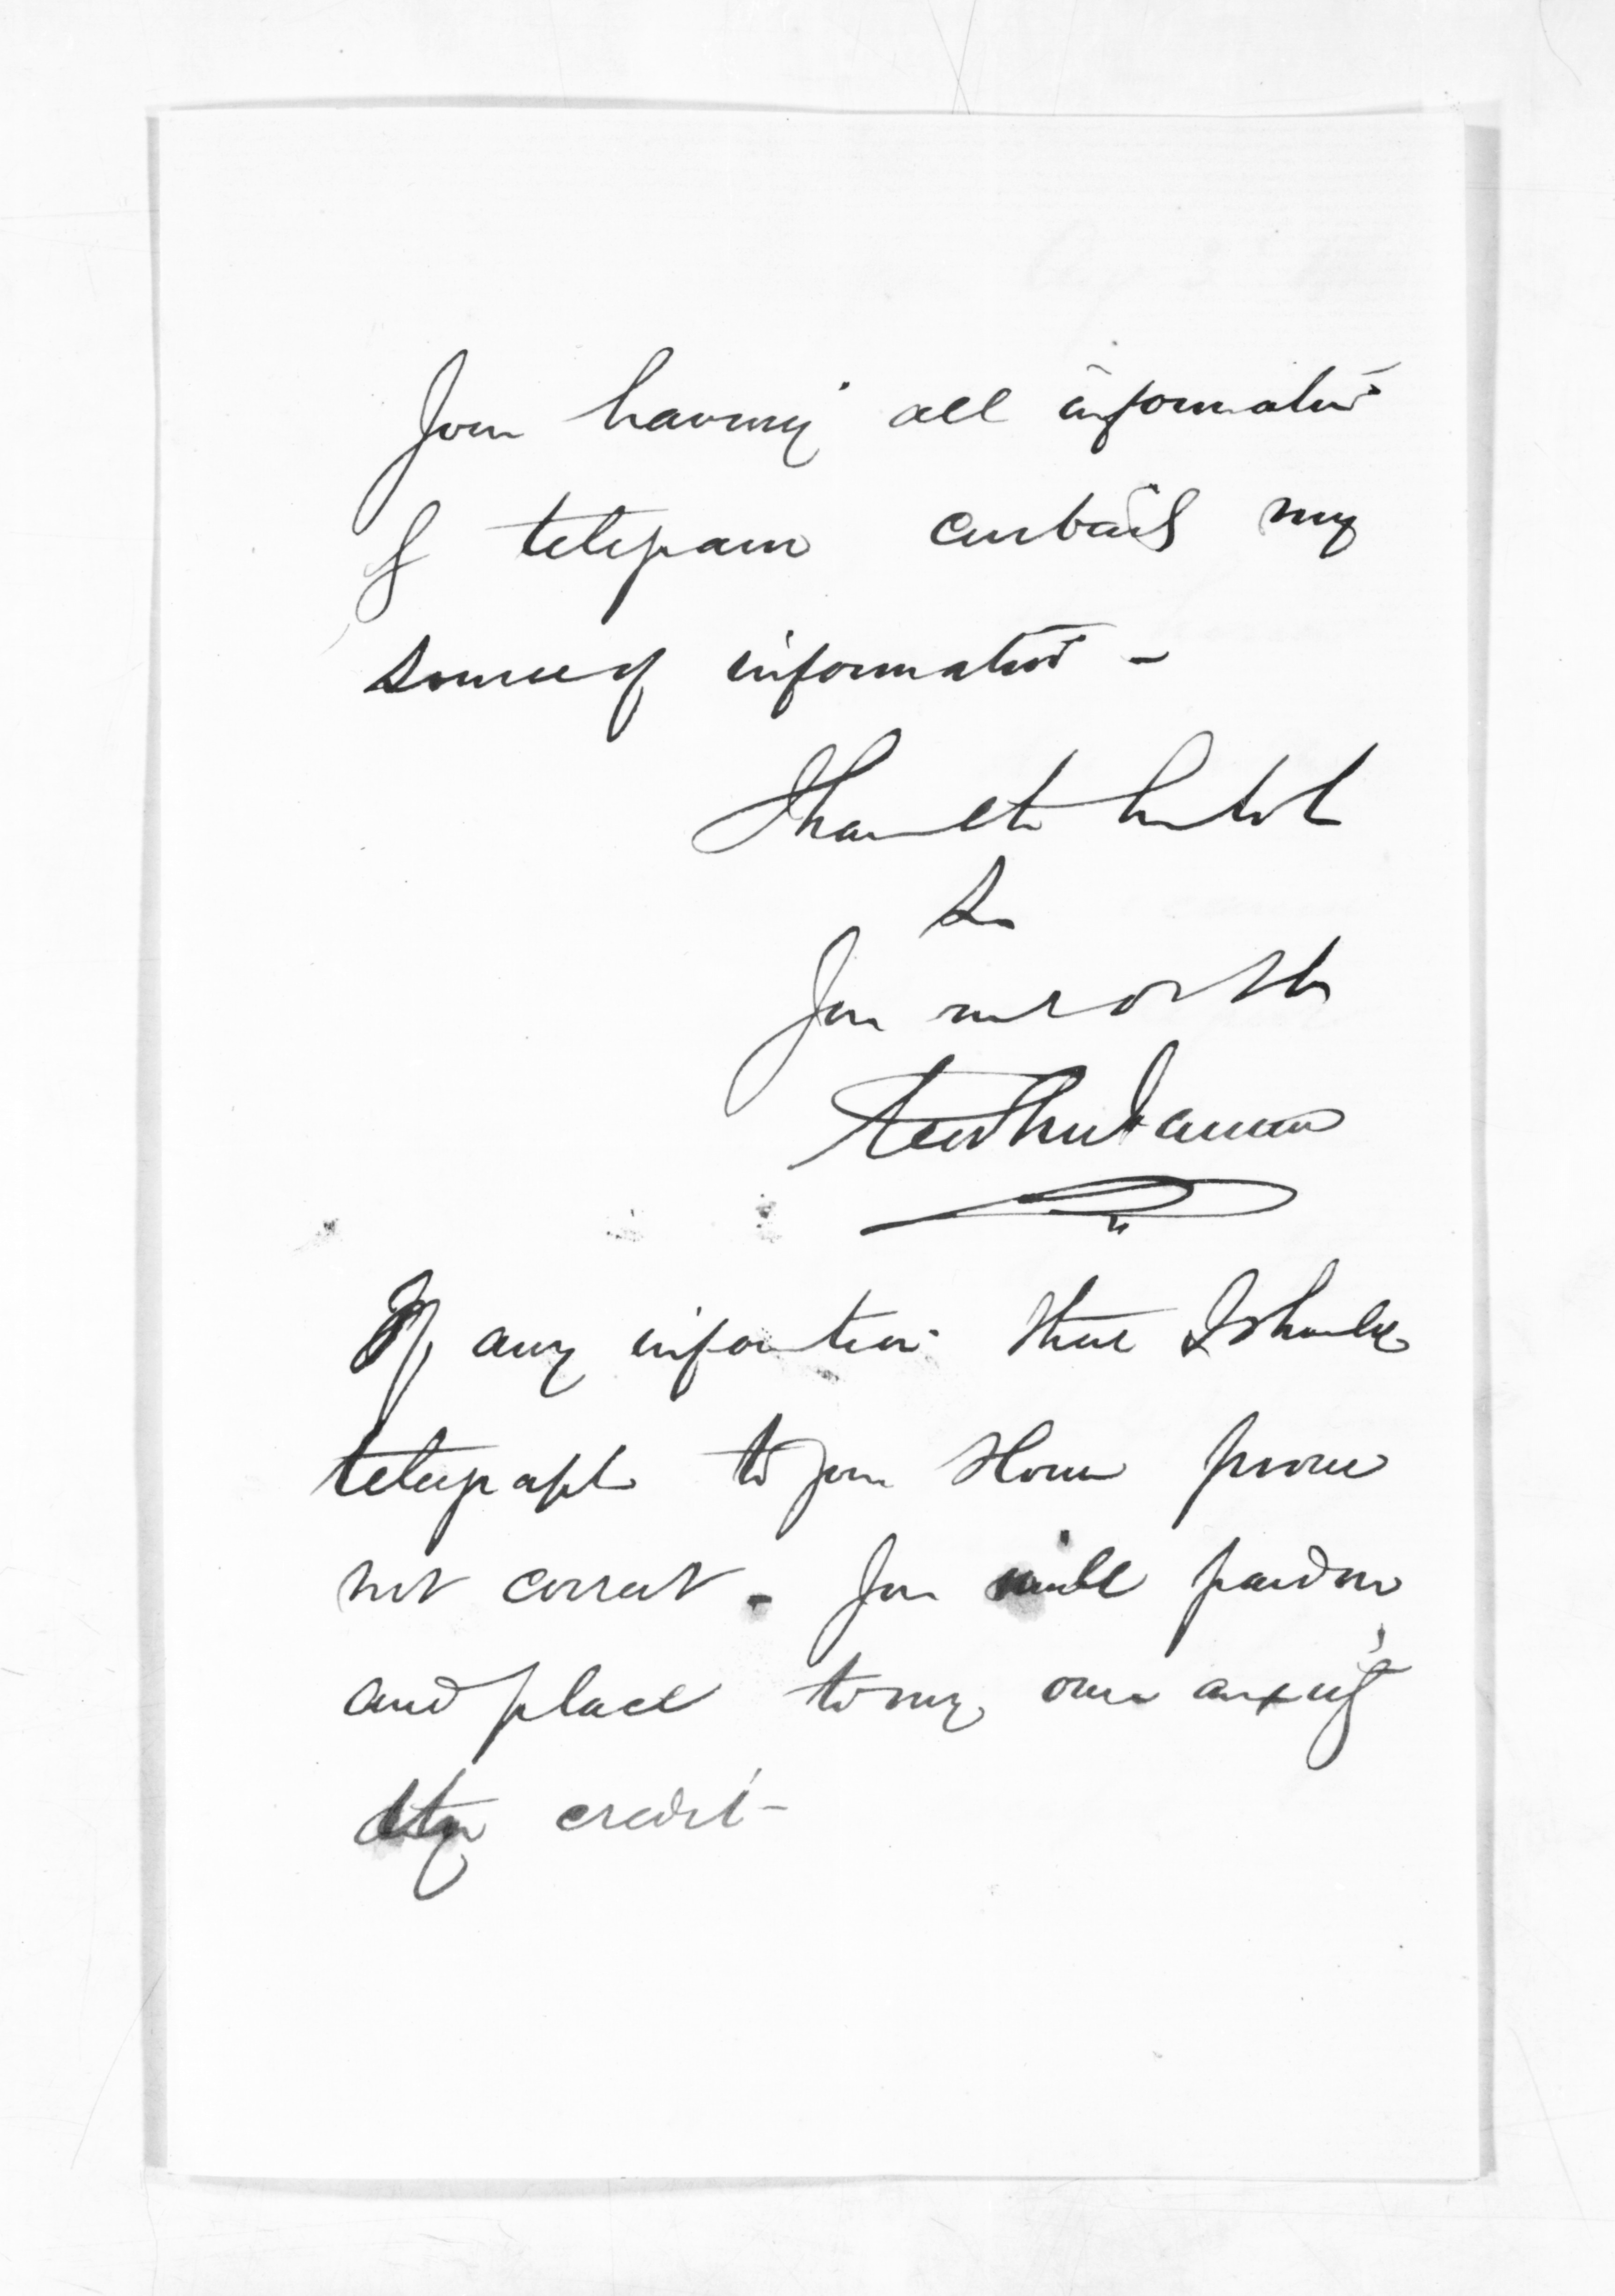 Your having all information
of telegram curtails my
source of information -
I have the honor to be
Sir
Your most obt
If any information that I should
telegraph to your Honor prove
not correct - You will pardon
and place to my own anxiety
the credit -